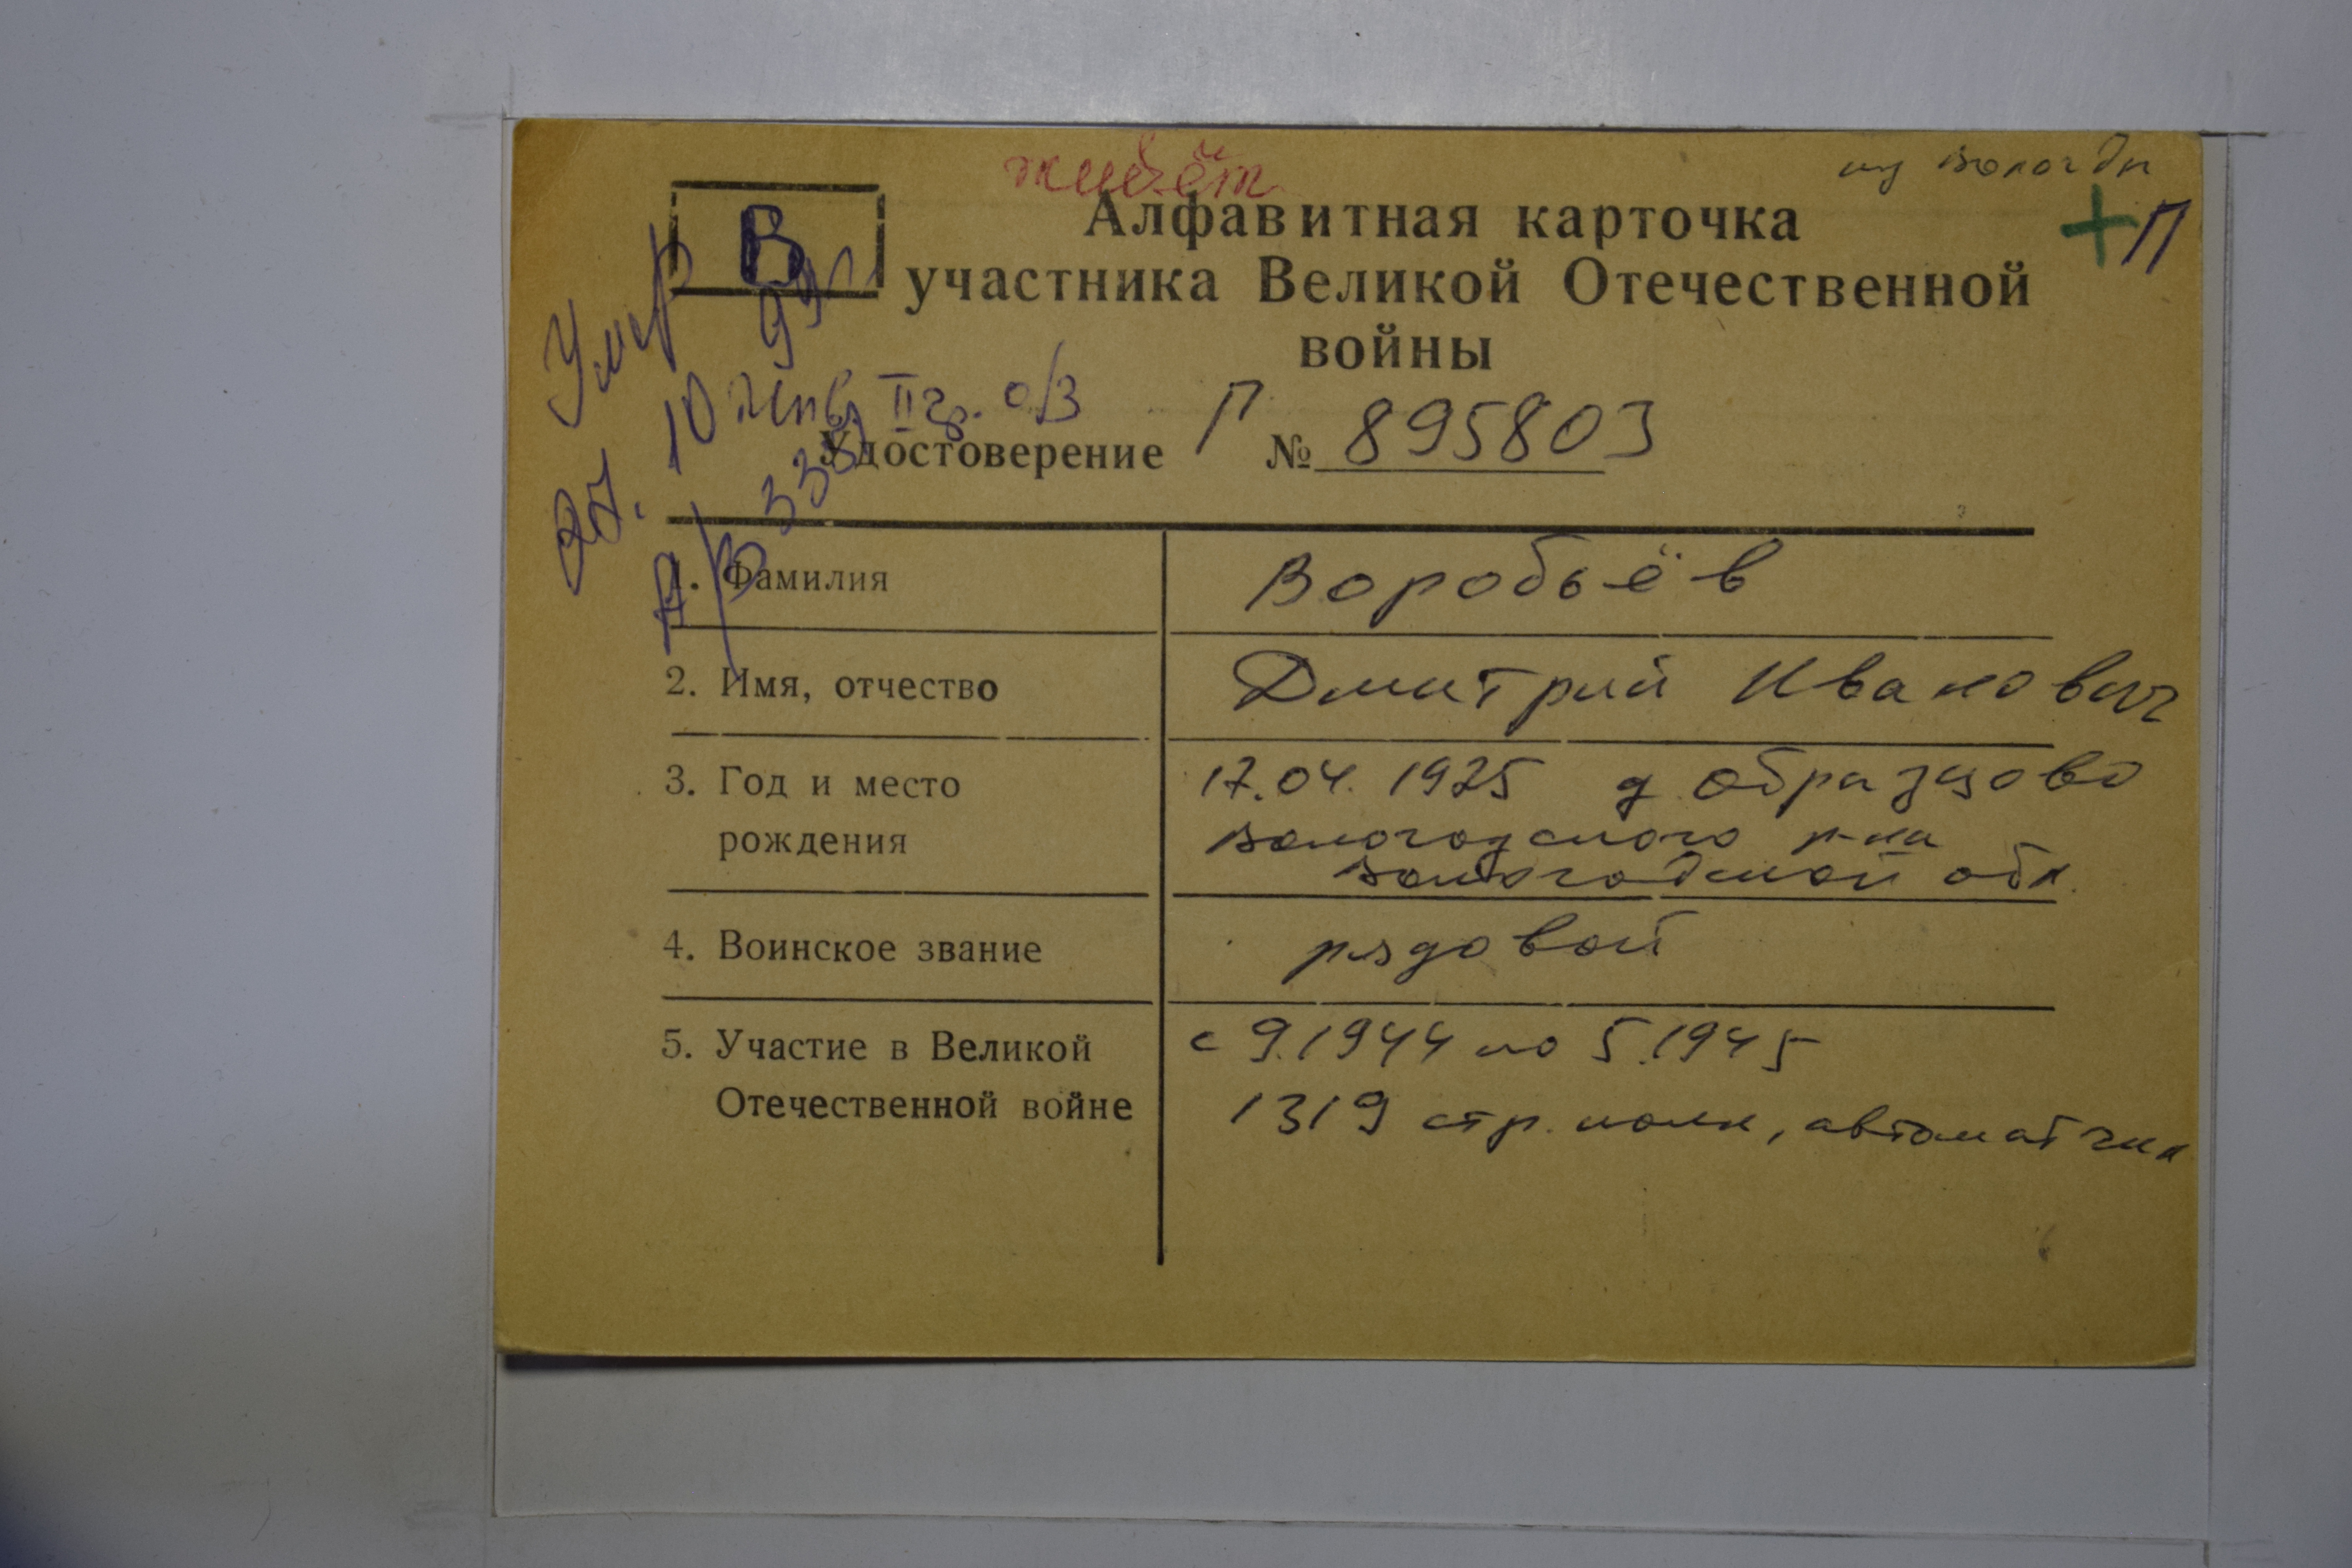 живёт
из Вологды
В
+П
Алфавитная карточка
участника Великой Отечественной
войны
Умер
10 II гр. о/з
Удостоверение Г № 895803
1. Фамилия Воробьёв
2. Имя, отчество Дмитрий Иванович
3. Год и место 17.04.1925 д Образцово
рождения Вологодского р-на
Вологодской обл.
4. Воинское звание рядовой
5. Участие в Великой с 9.1944 по 5.1945
Отечественной войне 1319 стр. полк, автоматчик